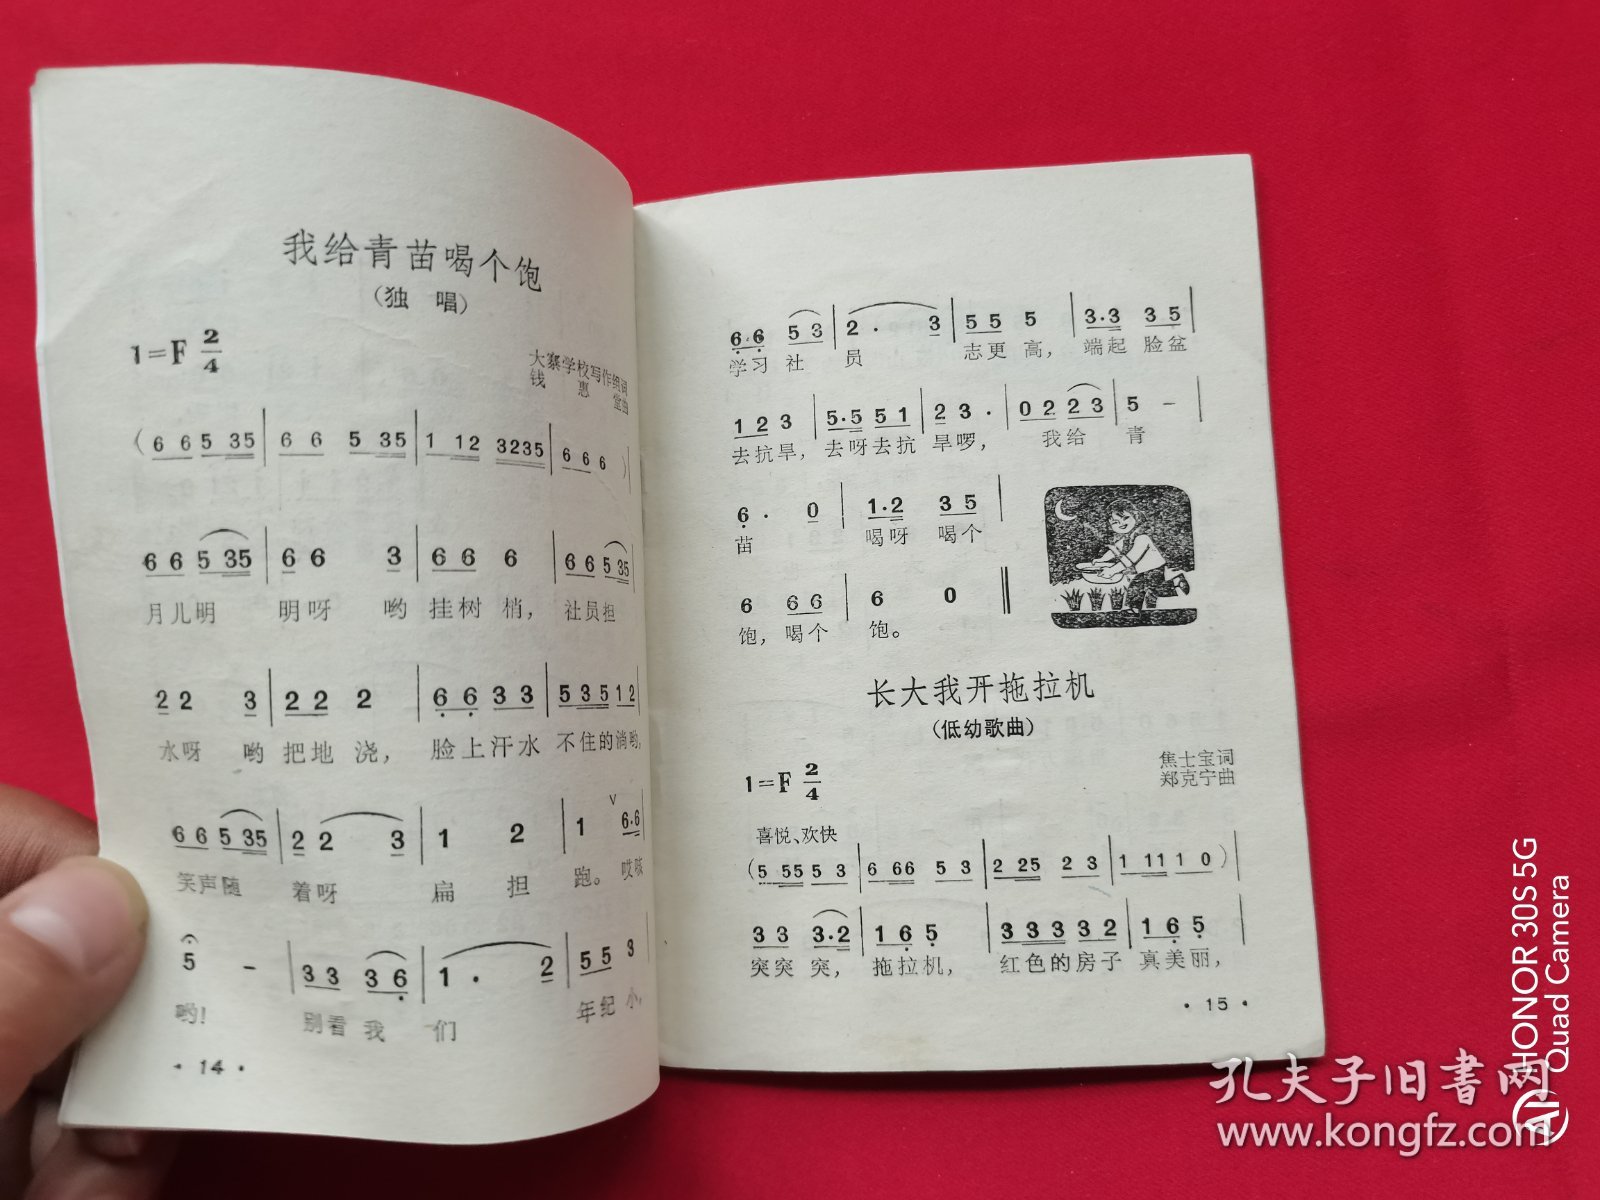 我给青苗喝个饱
(独 唱)
1=F 2/4
大寨学校写作组词
钱 惠 堂曲
(6 6 5 35 | 6 6 5 35 | 1 12 3235 | 6 6 6 )|
6 6 5 35 | 6 6 3 | 6 6 6 | 6 6 5 35
月儿明 明呀 哟 挂树 梢, 社员担
2 2 3 | 2 2 2 | 6 6 3 3 | 5 3 5 1 2
水呀 哟 把地 浇, 脸上汗水 不住的淌哟,
6 6 5 35 | 2 2 3 | 1 2 | 1 6·6
笑声随 着呀 扁 担 跑。 哎咳
5 - | 3 3 3 6 | 1 · 2 | 5 5 3
哟! 别看我 们 年纪小,
· 14 ·
6·6 5 3 | 2 · 3 | 5 5 5 | 3·3 3 5 |
学习 社 员 志更 高, 端起 脸盆
1 2 3 | 5·5 5 1 | 2 3 · | 0 2 2 3 | 5 - |
去抗旱, 去呀去抗 旱啰, 我给 青
6 · 0 | 1·2 3 5 |
苗 喝呀 喝个
6 6 6 | 6 0 ‖
饱, 喝个 饱。
长大我开拖拉机
(低幼歌曲)
1=F 2/4
焦士宝词
郑克宁曲
喜悦、欢快
(5 55 5 3 | 6 66 5 3 | 2 25 2 3 | 1 11 1 0 )|
3 3 3·2 | 1 6 5 | 3 3 3 3 2 | 1 6 5 |
突突 突, 拖拉机, 红色的房子 真美丽,
· 15 ·
HONOR 30S 5G
Quad Camera
AI
孔夫子旧书网
www.kongfz.com